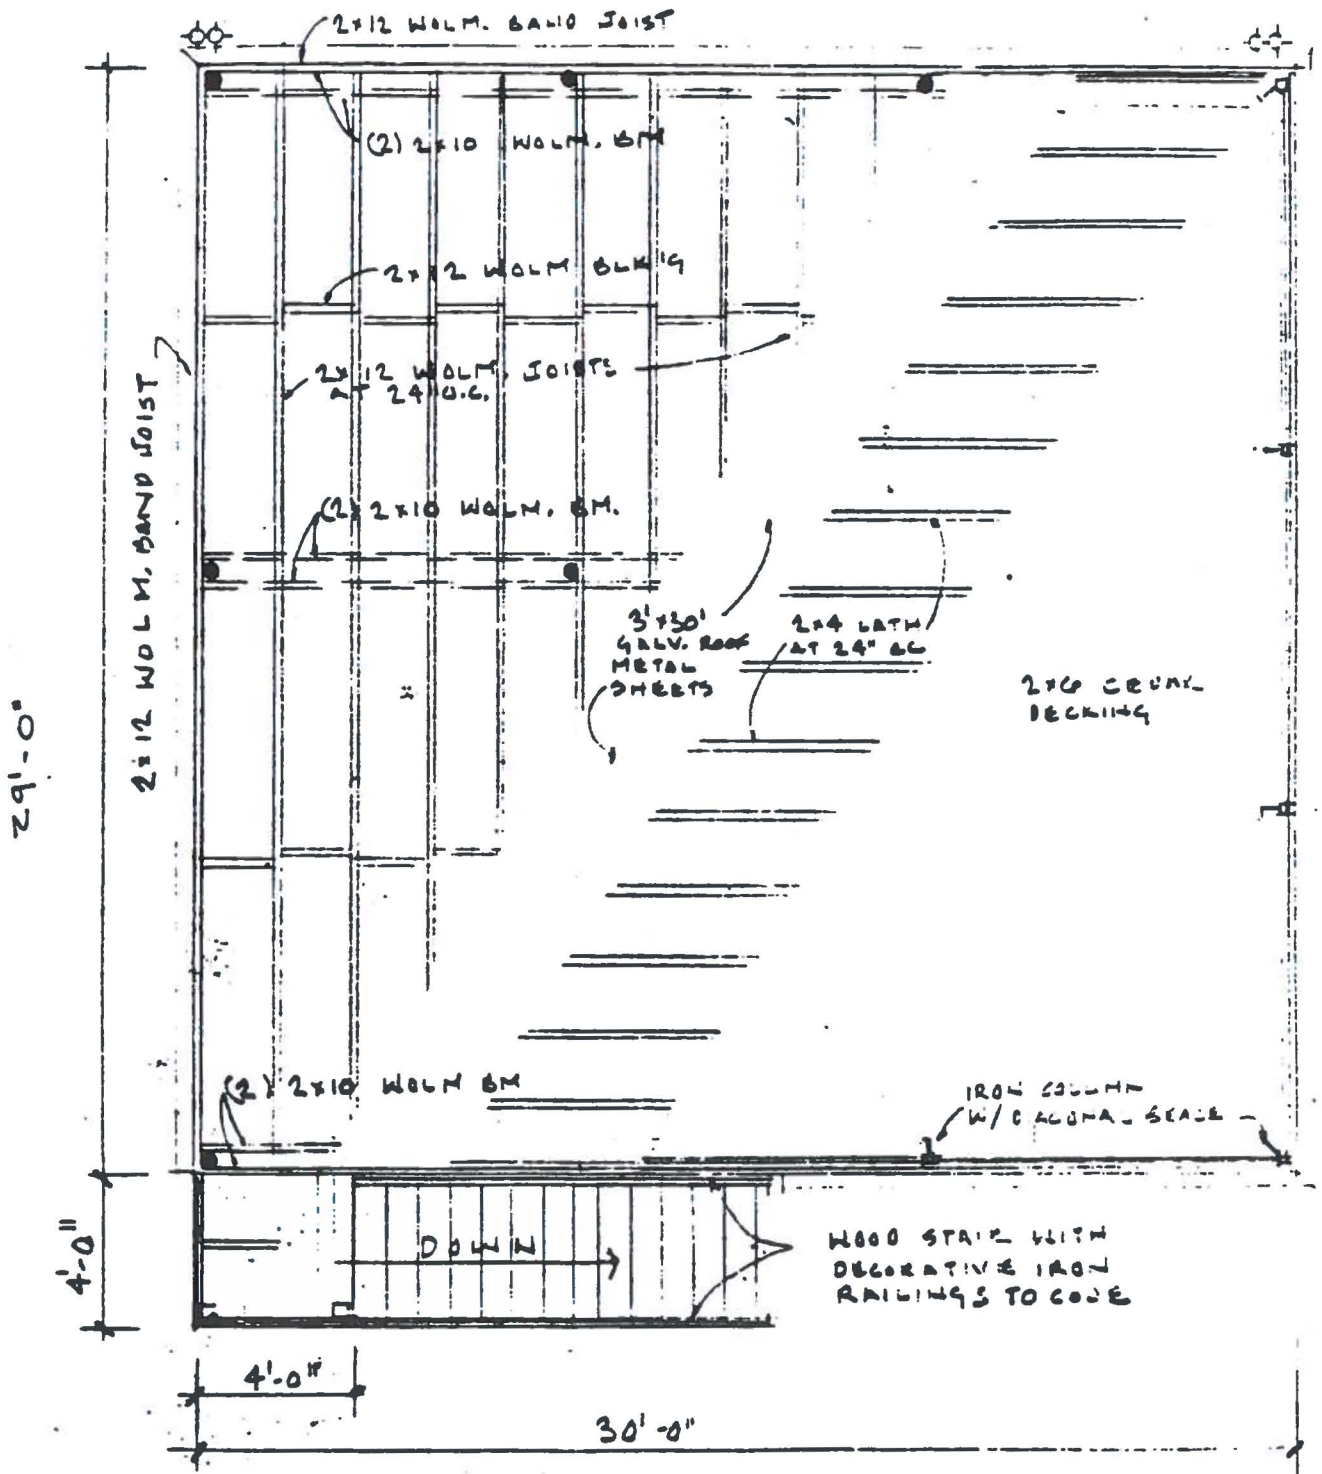 2x12 WOLM. BAND JOIST
(2) 2x10 WOLM. BM
2x12 WOLM BLK'G
2x12 WOLM. JOISTS
AT 24" O.C.
2x12 WOLM. BAND JOIST
(2) 2x10 WOLM. BM.
3'x30'
GALV. ROOF
METAL
SHEETS
2x4 LATH
AT 24" OC
2x6
DECKING
29'-0"
(2) 2x10 WOLM BM
IRON COLUMN
W/
4'-0"
DOWN
WOOD STAIR WITH
DECORATIVE IRON
RAILINGS TO CODE
4'-0"
30'-0"